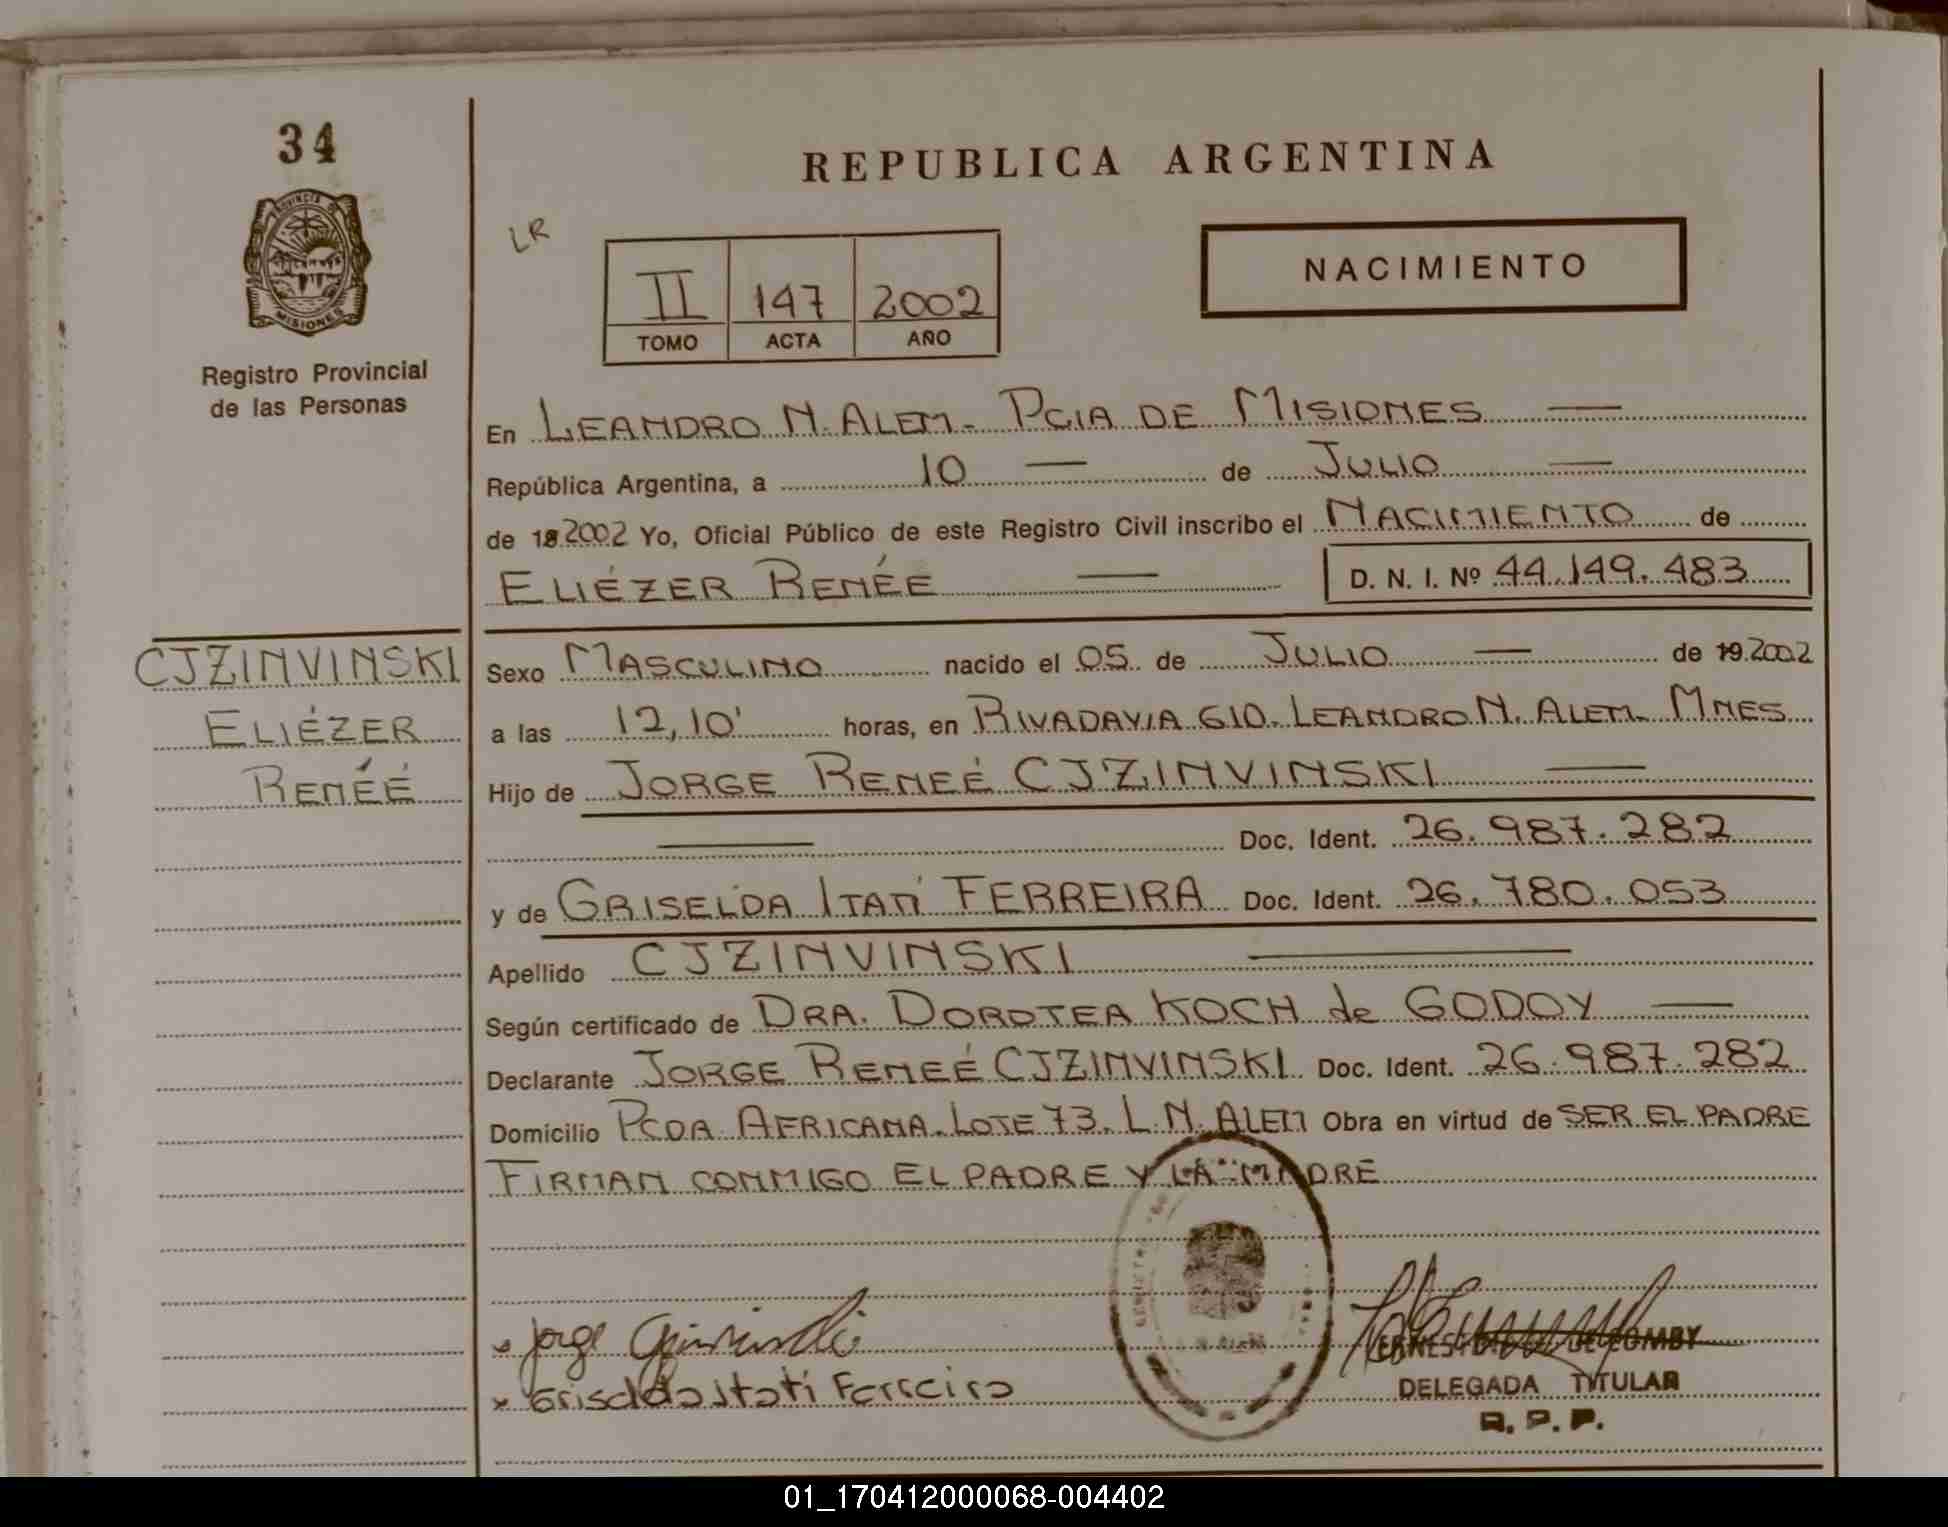 34
PROVINCIA DE
MISIONES
Registro Provincial
de las Personas
CJZINVINSKI
ELIÉZER
RENÉÉ
REPUBLICA ARGENTINA
LR
II 147 2002
TOMO ACTA AÑO
NACIMIENTO
En LEANDRO N. ALEM - PCIA DE MISIONES —
República Argentina, a 10 — de JULIO —
de 19 2002 Yo, Oficial Público de este Registro Civil inscribo el NACIMIENTO de
ELIÉZER RENÉE — D. N. I. Nº 44.149.483
Sexo MASCULINO nacido el 05 de JULIO — de 19 2002
a las 12,10' horas, en RIVADAVIA 610. LEANDRO N. ALEM. MNES
Hijo de JORGE RENEÉ CJZINVINSKI —
— Doc. Ident. 26.987.282
y de GRISELDA ITATÍ FERREIRA Doc. Ident. 26.780.053
Apellido CJZINVINSKI —
Según certificado de DRA. DOROTEA KOCH de GODOY —
Declarante JORGE RENEÉ CJZINVINSKI Doc. Ident. 26.987.282
Domicilio PCDA AFRICANA. LOTE 73. L. N. ALEM Obra en virtud de SER EL PADRE
FIRMAN CONMIGO EL PADRE Y LA MADRE
x Jorge
x Griselda Itatí Ferreira
DELEGADA TITULAR
R. P. P.
01_170412000068-004402